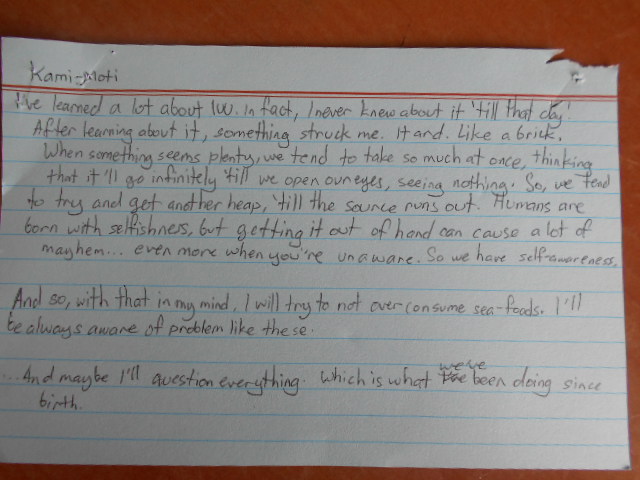 Kami-moti
I've learned a lot about IUU. In fact, I never knew about it 'till that day.
After learning about it, something struck me. Hard. Like a brick.
When something seems plenty, we tend to take so much at once, thinking
that it'll go infinitely 'till we open our eyes, seeing nothing. So, we tend
to try and get another heap, 'till the source runs out. Humans are
born with selfishness, but getting it out of hand can cause a lot of
mayhem... even more when you're unaware. So we have self-awareness.
And so, with that in my mind, I will try to not over-consume sea-foods. I'll
be always aware of problem like these.
...And maybe I'll question everything. Which is what we've been doing since
birth.